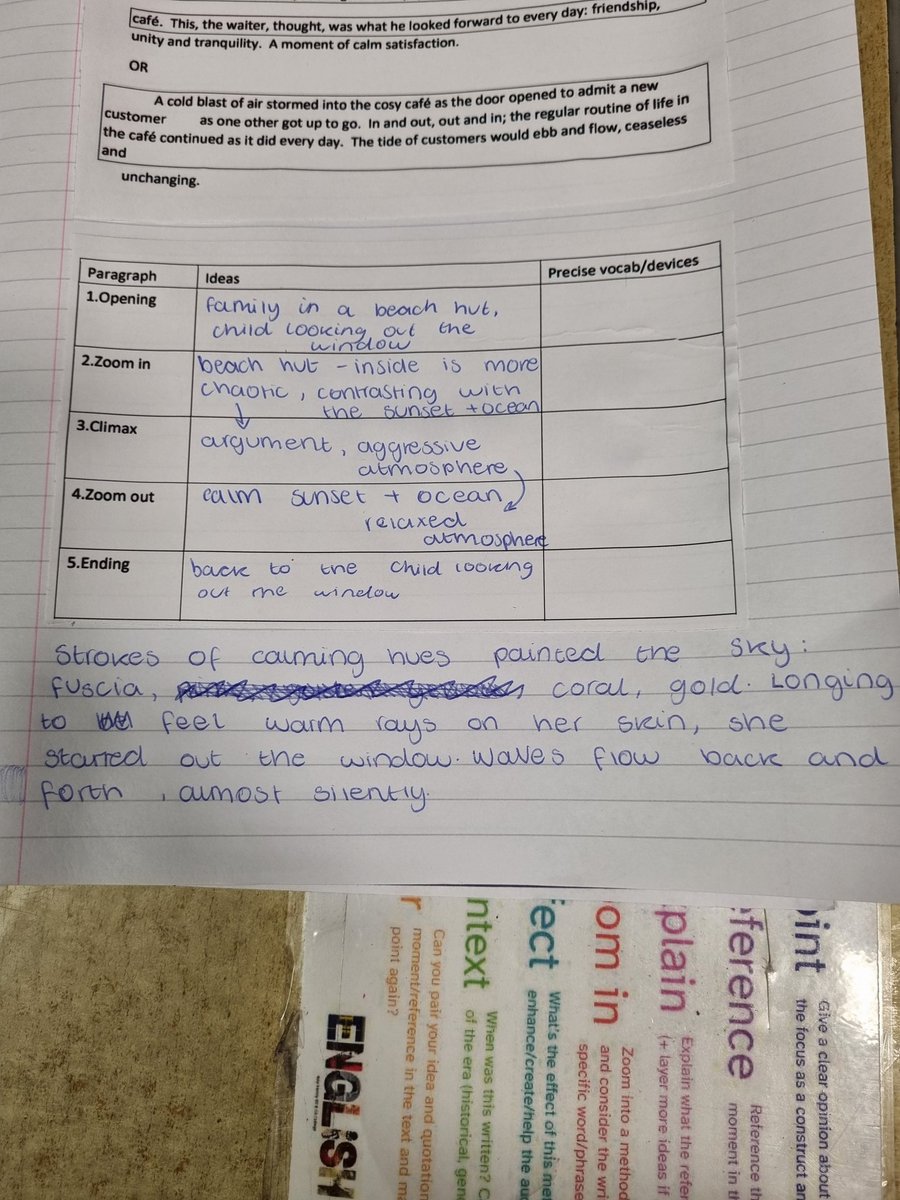 café. This, the waiter, thought, was what he looked forward to every day: friendship,
unity and tranquility. A moment of calm satisfaction.
OR
A cold blast of air stormed into the cosy café as the door opened to admit a new
customer as one other got up to go. In and out, out and in; the regular routine of life in
the café continued as it did every day. The tide of customers would ebb and flow, ceaseless
and
unchanging.
Paragraph Ideas Precise vocab/devices
1.Opening family in a beach hut,
child looking out the
window
2.Zoom in beach hut - inside is more
chaotic, contrasting with
the sunset + ocean
3.Climax argument, aggressive
atmosphere
4.Zoom out calm sunset + ocean
relaxed
atmosphere
5.Ending back to the child looking
out the window
Strokes of calming hues painted the sky:
fuscia, coral, gold. Longing
to feel warm rays on her skin, she
starred out the window. Waves flow back and
forth, almost silently.
oint Give a clear opinion about
the focus as a construct an
ference Reference th
moment in th
plain Explain what the refer
(+ layer more ideas if
om in Zoom into a method
and consider the wri
specific word/phrase
fect What's the effect of this met
enhance/create/help the au
ntext When was this written? C
of the era (historical, gen
r Can you pair your idea and quotation
moment/reference in the text and m
point again?
ENGLISH